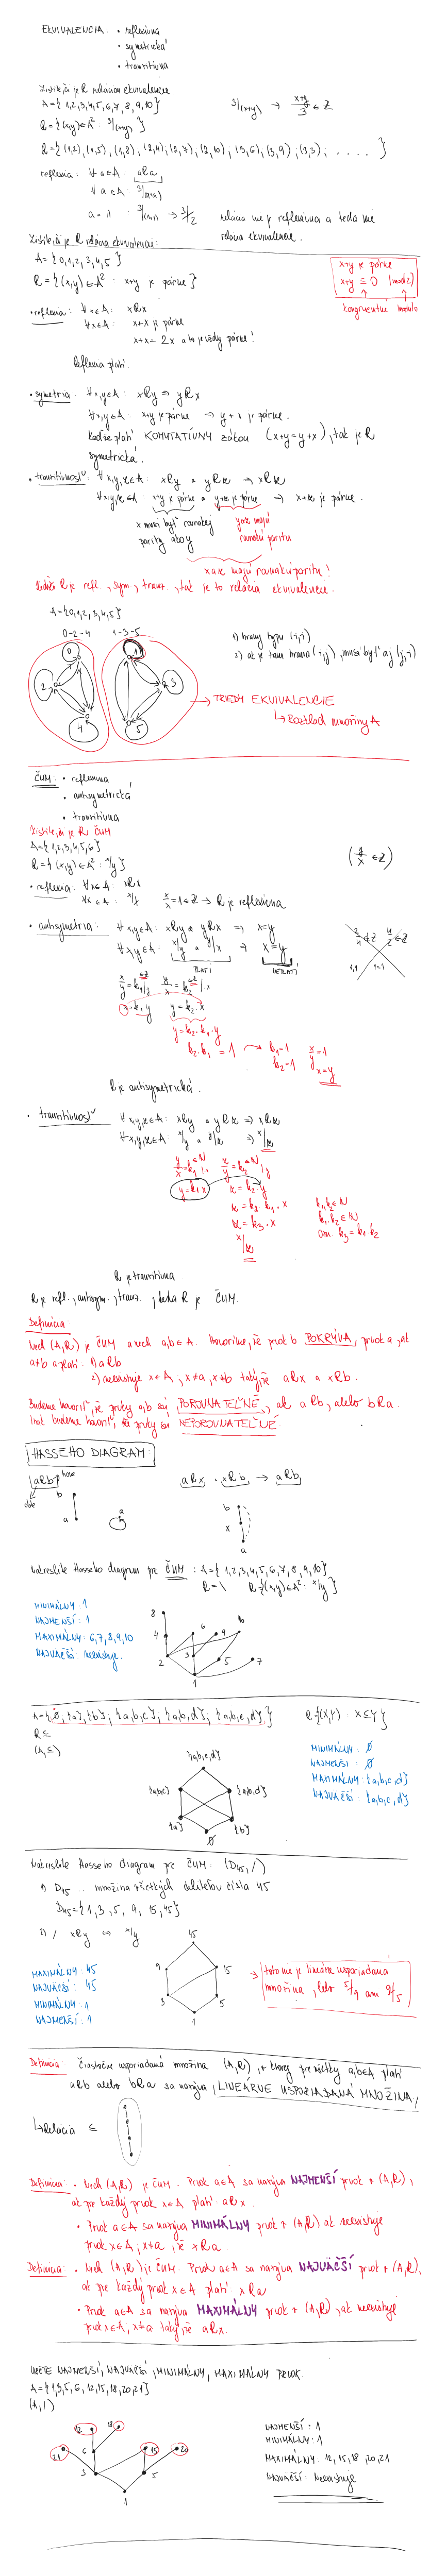 EKVIVALENCIA: • reflexívna
• symetrická
• tranzitívna
Zistite, či je R relácia ekvivalencie.
A={1,2,3,4,5,6,7,8,9,10}
3/(x+y) → (x+y)/3 ∈ Z
R={(x,y)∈A²: 3/(x+y)}
R={(1,2),(1,5),(1,8),(2,4),(2,7),(2,10),(3,6),(3,9),(3,3), ....}
reflexia: ∀a∈A: aRa
∀a∈A: 3/(a+a)
a=1 : 3/(1+1) → 3/2
relácia nie je reflexívna a teda nie
relácia ekvivalencie.
Zistite, či je R relácia ekvivalencie:
A={0,1,2,3,4,5}
R={(x,y)∈A²: x+y je párne}
x+y je párne
x+y ≡ 0 (mod 2)
kongruentné modulo
• reflexia: ∀x∈A: xRx
∀x∈A: x+x je párne
x+x=2x a to je vždy párne!
Reflexia platí.
• symetria: ∀x,y∈A: xRy ⇒ yRx
∀x,y∈A: x+y je párne ⇒ y+x je párne.
Keďže platí KOMUTATÍVNY zákon (x+y=y+x), tak je R
symetrická.
• tranzitívnosť: ∀x,y,z∈A: xRy ∧ yRz ⇒ xRz
∀x,y,z∈A: x+y je párne ∧ y+z je párne → x+z je párne.
x musí byť rovnakej
parity ako y
y a z majú
rovnakú paritu
x a z majú rovnakú paritu!
Keďže R je refl., sym., tranz., tak je to relácia ekvivalencie.
A={0,1,2,3,4,5}
0-2-4 1-3-5
1) hrany typu (i,i)
2) ak je tam hrana (i,j), musí byť aj (j,i)
0 1 2 3 4 5
→ TRIEDY EKVIVALENCIE
↳ Rozklad množiny A
ČUM: • reflexívna
• antisymetrická
• tranzitívna
Zistite, či je R ČUM
A={1,2,3,4,5,6}
R={(x,y)∈A²: x/y}
(y/x ∈ Z)
• reflexia: ∀x∈A: xRx
∀x∈A: x/x x/x=1∈Z → R je reflexívna
• antisymetria: ∀x,y∈A: xRy ∧ yRx ⇒ x=y
∀x,y∈A: x/y ∧ y/x ⇒ x=y
PLATÍ NEPLATÍ
2/4 ∉ Z 4/2 ∈ Z
1,1 1=1
x/y=k₁ y/x=k₂
x=k₁·y y=k₂·x
y=k₂·k₁·y
k₂·k₁=1 → k₁=1
k₂=1
x/y=1
x=y
R je antisymetrická.
• tranzitívnosť ∀x,y,z∈A: xRy ∧ yRz ⇒ xRz
∀x,y,z∈A: x/y ∧ y/z ⇒ x/z
y/x=k₁∈N z/y=k₂∈N
y=k₁·x z=k₂·y
z=k₂·k₁·x
z=k₃·x
x/z
k₁,k₂∈N
k₁·k₂∈N
ozn. k₃=k₁·k₂
R je tranzitívna.
R je refl., antisym., tranz., teda R je ČUM.
Definícia
Nech (A,R) je ČUM a nech a,b∈A. Hovoríme, že prvok b POKRÝVA prvok a, ak
a≠b a platí: 1) aRb
2) neexistuje x∈A, x≠a, x≠b taký, že aRx a xRb.
Budeme hovoriť, že prvky a,b sú POROVNATEĽNÉ, ak aRb, alebo bRa.
Inak budeme hovoriť, že prvky sú NEPOROVNATEĽNÉ
HASSEHO DIAGRAM:
aRb hore
dole
b
a
a
aRx ∧ xRb → aRb
b
x
a
Nakreslite Hasseho diagram pre ČUM: A={1,2,3,4,5,6,7,8,9,10}
R=\ R={(x,y)∈A²: x/y}
MINIMÁLNY: 1
NAJMENŠÍ: 1
MAXIMÁLNY: 6,7,8,9,10
NAJVÄČŠÍ: neexistuje.
8 6 9 10
4 3
2 5 7
1
A={∅,{a},{b},{a,b,c},{a,b,d},{a,b,c,d}} R={(X,Y): X⊆Y}
R ⊆
(A,⊆)
{a,b,c,d}
{a,b,c} {a,b,d}
{a} {b}
∅
MINIMÁLNY: ∅
NAJMENŠÍ: ∅
MAXIMÁLNY: {a,b,c,d}
NAJVÄČŠÍ: {a,b,c,d}
Nakreslite Hasseho diagram pre ČUM: (D₄₅,/)
1) D₄₅ ... množina všetkých deliteľov čísla 45
D₄₅={1,3,5,9,15,45}
2) / xRy ⇔ x/y
45
9 15
3 5
1
MAXIMÁLNY: 45
NAJVÄČŠÍ: 45
MINIMÁLNY: 1
NAJMENŠÍ: 1
→ toto nie je lineárne usporiadaná
množina, lebo 5/9 ani 9/5
Definícia Čiastočne usporiadaná množina (A,R), v ktorej pre všetky a,b∈A platí
aRb alebo bRa sa nazýva LINEÁRNE USPORIADANÁ MNOŽINA
↳ Relácia ≤
Definícia • Nech (A,R) je ČUM. Prvok a∈A sa nazýva NAJMENŠÍ prvok v (A,R),
ak pre každý prvok x∈A platí aRx.
• Prvok a∈A sa nazýva MINIMÁLNY prvok v (A,R) ak neexistuje
prvok x∈A, x≠a, že xRa.
Definícia • Nech (A,R) je ČUM. Prvok a∈A sa nazýva NAJVÄČŠÍ prvok v (A,R),
ak pre každý prvok x∈A platí xRa
• Prvok a∈A sa nazýva MAXIMÁLNY prvok v (A,R), ak neexistuje
prvok x∈A, x≠a taký, že aRx.
URČTE NAJMENŠÍ, NAJVÄČŠÍ, MINIMÁLNY, MAXIMÁLNY PRVOK.
A={1,3,5,6,12,15,18,20,21}
(A,/)
12 18
21 6 15 20
3 5
1
NAJMENŠÍ: 1
MINIMÁLNY: 1
MAXIMÁLNY: 12,15,18,20,21
NAJVÄČŠÍ: Neexistuje